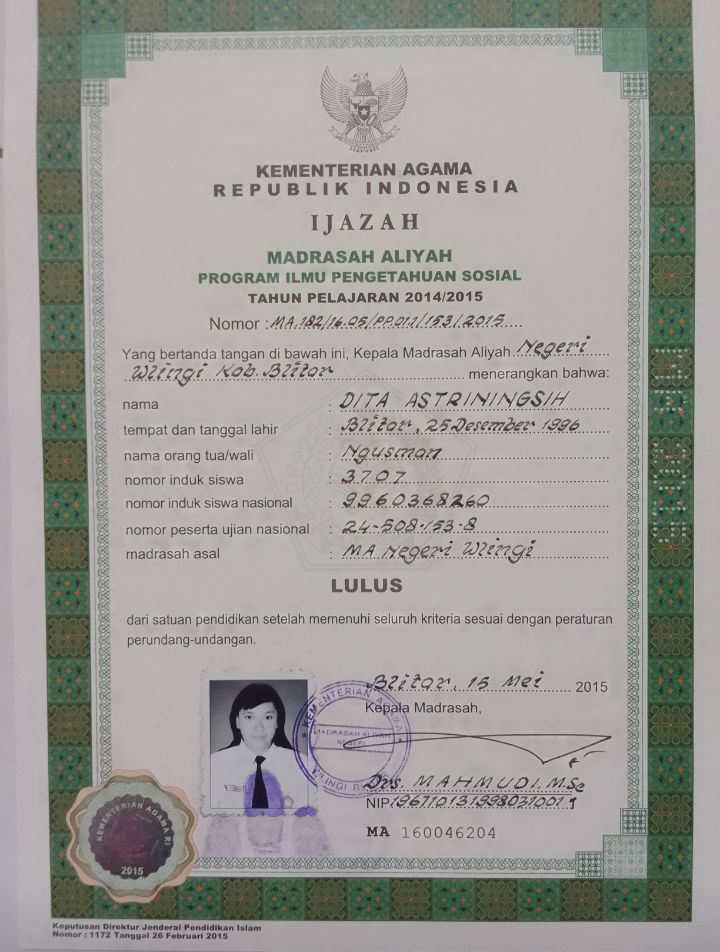 KEMENTERIAN AGAMA
REPUBLIK INDONESIA
IJAZAH
MADRASAH ALIYAH
PROGRAM ILMU PENGETAHUAN SOSIAL
TAHUN PELAJARAN 2014/2015
Nomor : MA.182/16.05/PP.01.1/153/2015
Yang bertanda tangan di bawah ini, Kepala Madrasah Aliyah Negeri
Wlingi Kab. Blitar menerangkan bahwa:
nama : DITA ASTRININGSIH
tempat dan tanggal lahir : Blitar, 25 Desember 1996
nama orang tua/wali : Ngusman
nomor induk siswa : 3707
nomor induk siswa nasional : 9960368260
nomor peserta ujian nasional : 24-508-153-8
madrasah asal : MA Negeri Wlingi
LULUS
dari satuan pendidikan setelah memenuhi seluruh kriteria sesuai dengan peraturan
perundang-undangan.
Blitar, 15 Mei 2015
Kepala Madrasah,
KEMENTERIAN AGAMA
MADRASAH ALIYAH
NEGERI
Drs. MAHMUDI. M.Sc
NIP 196711013199803 1001
MA 160046204
KEMENTERIAN AGAMA RI
2015
Keputusan Direktur Jenderal Pendidikan Islam
Nomor : 1172 Tanggal 26 Februari 2015